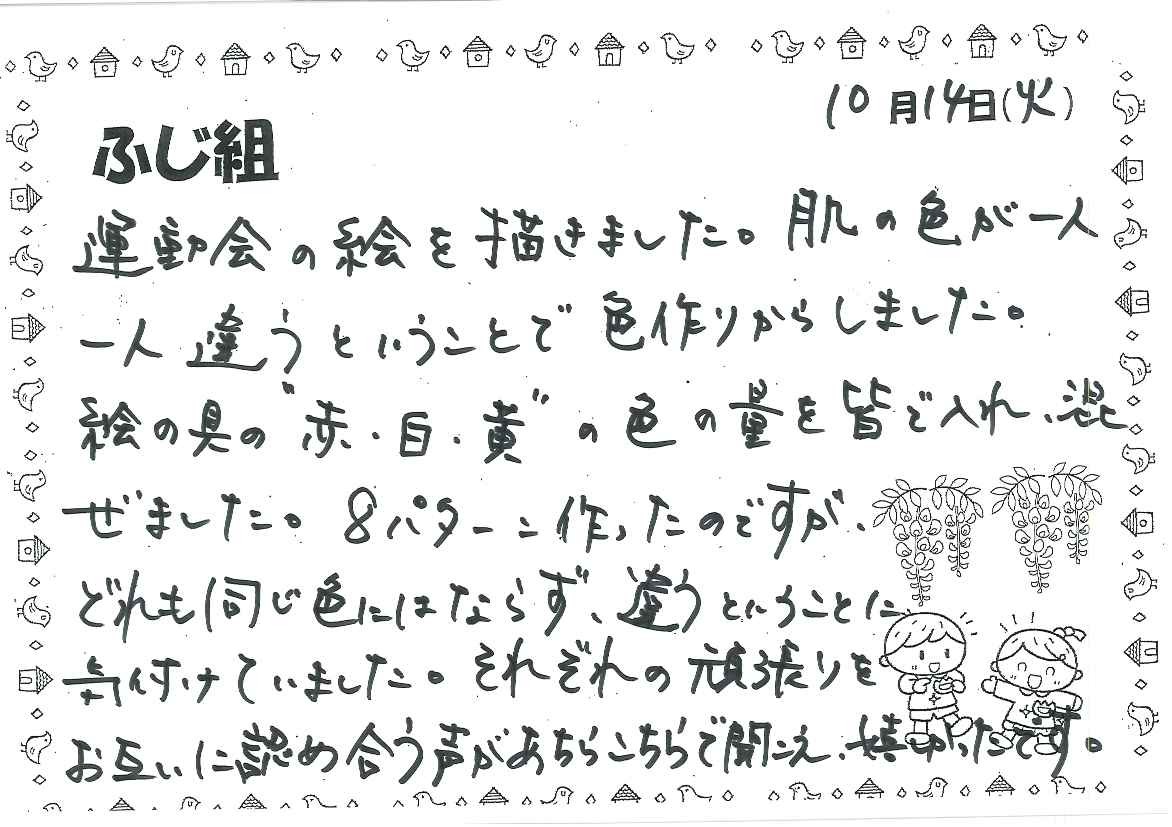 10月14日(火)
ふじ組
運動会の絵を描きました。肌の色が一人
一人違うということで色作りからしました。
絵の具の"赤・白・黄"の色の量を皆で入れ、混
ぜました。8パターン作ったのですが、
どれも同じ色にはならず、違うということに
気付けていました。それぞれの頑張りを
お互いに認め合う声があちらこちらで聞こえ、嬉しかったです。